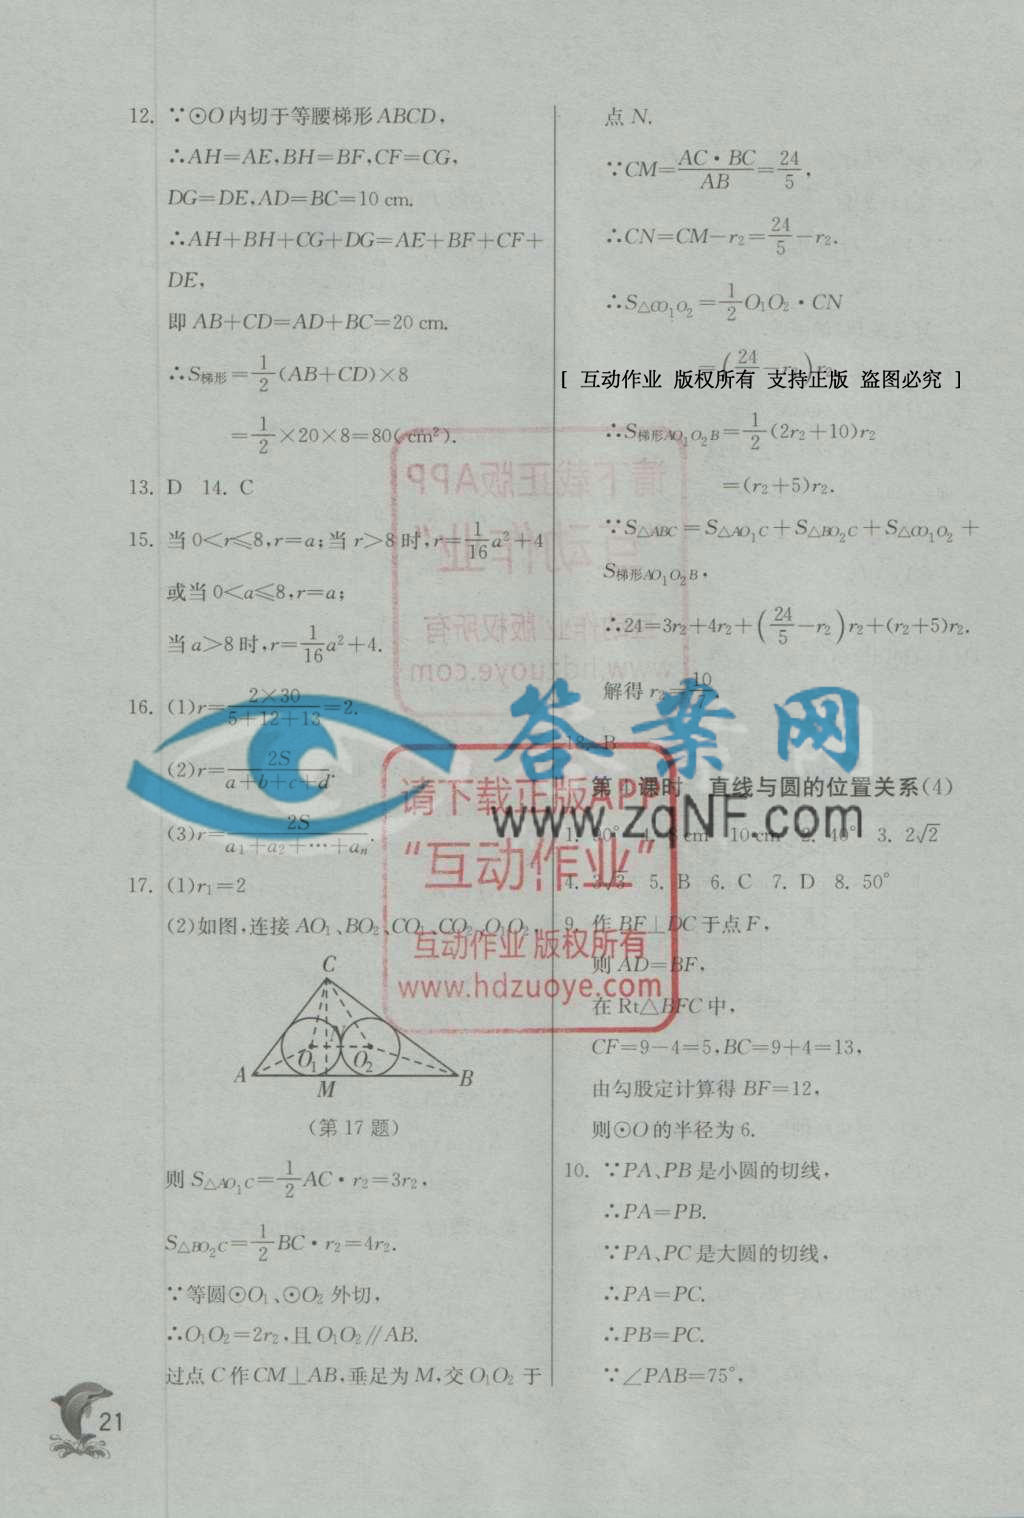 12. ∵⊙O内切于等腰梯形ABCD,
∴AH=AE,BH=BF,CF=CG,
DG=DE,AD=BC=10 cm.
∴AH+BH+CG+DG=AE+BF+CF+
DE,
即 AB+CD=AD+BC=20 cm.
∴S梯形=1/2(AB+CD)×8
=1/2×20×8=80(cm²).
13. D 14. C
15. 当0<r≤8,r=a;当r>8时,r=1/16a²+4
或当0<a≤8,r=a;
当a>8时,r=1/16a²+4.
16. (1)r=2×30/(5+12+13)=2.
(2)r=2S/(a+b+c+d).
(3)r=2S/(a₁+a₂+…+aₙ).
17. (1)r₁=2
(2)如图,连接AO₁、BO₂、CO₁、CO₂、O₁O₂,
C
N
O₁ O₂
A M B
(第17题)
则 S△AO₁C=1/2AC·r₂=3r₂,
S△BO₂C=1/2BC·r₂=4r₂.
∵等圆⊙O₁、⊙O₂外切,
∴O₁O₂=2r₂,且O₁O₂∥AB.
过点C作CM⊥AB,垂足为M,交O₁O₂于
21
点 N.
∵CM=AC·BC/AB=24/5,
∴CN=CM-r₂=24/5-r₂.
∴S△CO₁O₂=1/2O₁O₂·CN
=(24/5-r₂)r₂.
[ 互动作业 版权所有 支持正版 盗图必究 ]
∴S梯形AO₁O₂B=1/2(2r₂+10)r₂
=(r₂+5)r₂.
∵S△ABC=S△AO₁C+S△BO₂C+S△CO₁O₂+
S梯形AO₁O₂B,
∴24=3r₂+4r₂+(24/5-r₂)r₂+(r₂+5)r₂.
解得 r₂=10/7.
18. B
第4课时 直线与圆的位置关系(4)
cm 10 cm 2. 40° 3. 2√2
4. 3√3 5. B 6. C 7. D 8. 50°
9. 作BF⊥DC于点F,
则 AD=BF,
在 Rt△BFC中,
CF=9-4=5,BC=9+4=13,
由勾股定计算得 BF=12,
则⊙O的半径为6.
10. ∵PA、PB是小圆的切线,
∴PA=PB.
∵PA、PC是大圆的切线,
∴PA=PC.
∴PB=PC.
∵∠PAB=75°,
答案网
www.zqNF.com
请下载正版APP
“互动作业”
互动作业 版权所有
www.hdzuoye.com